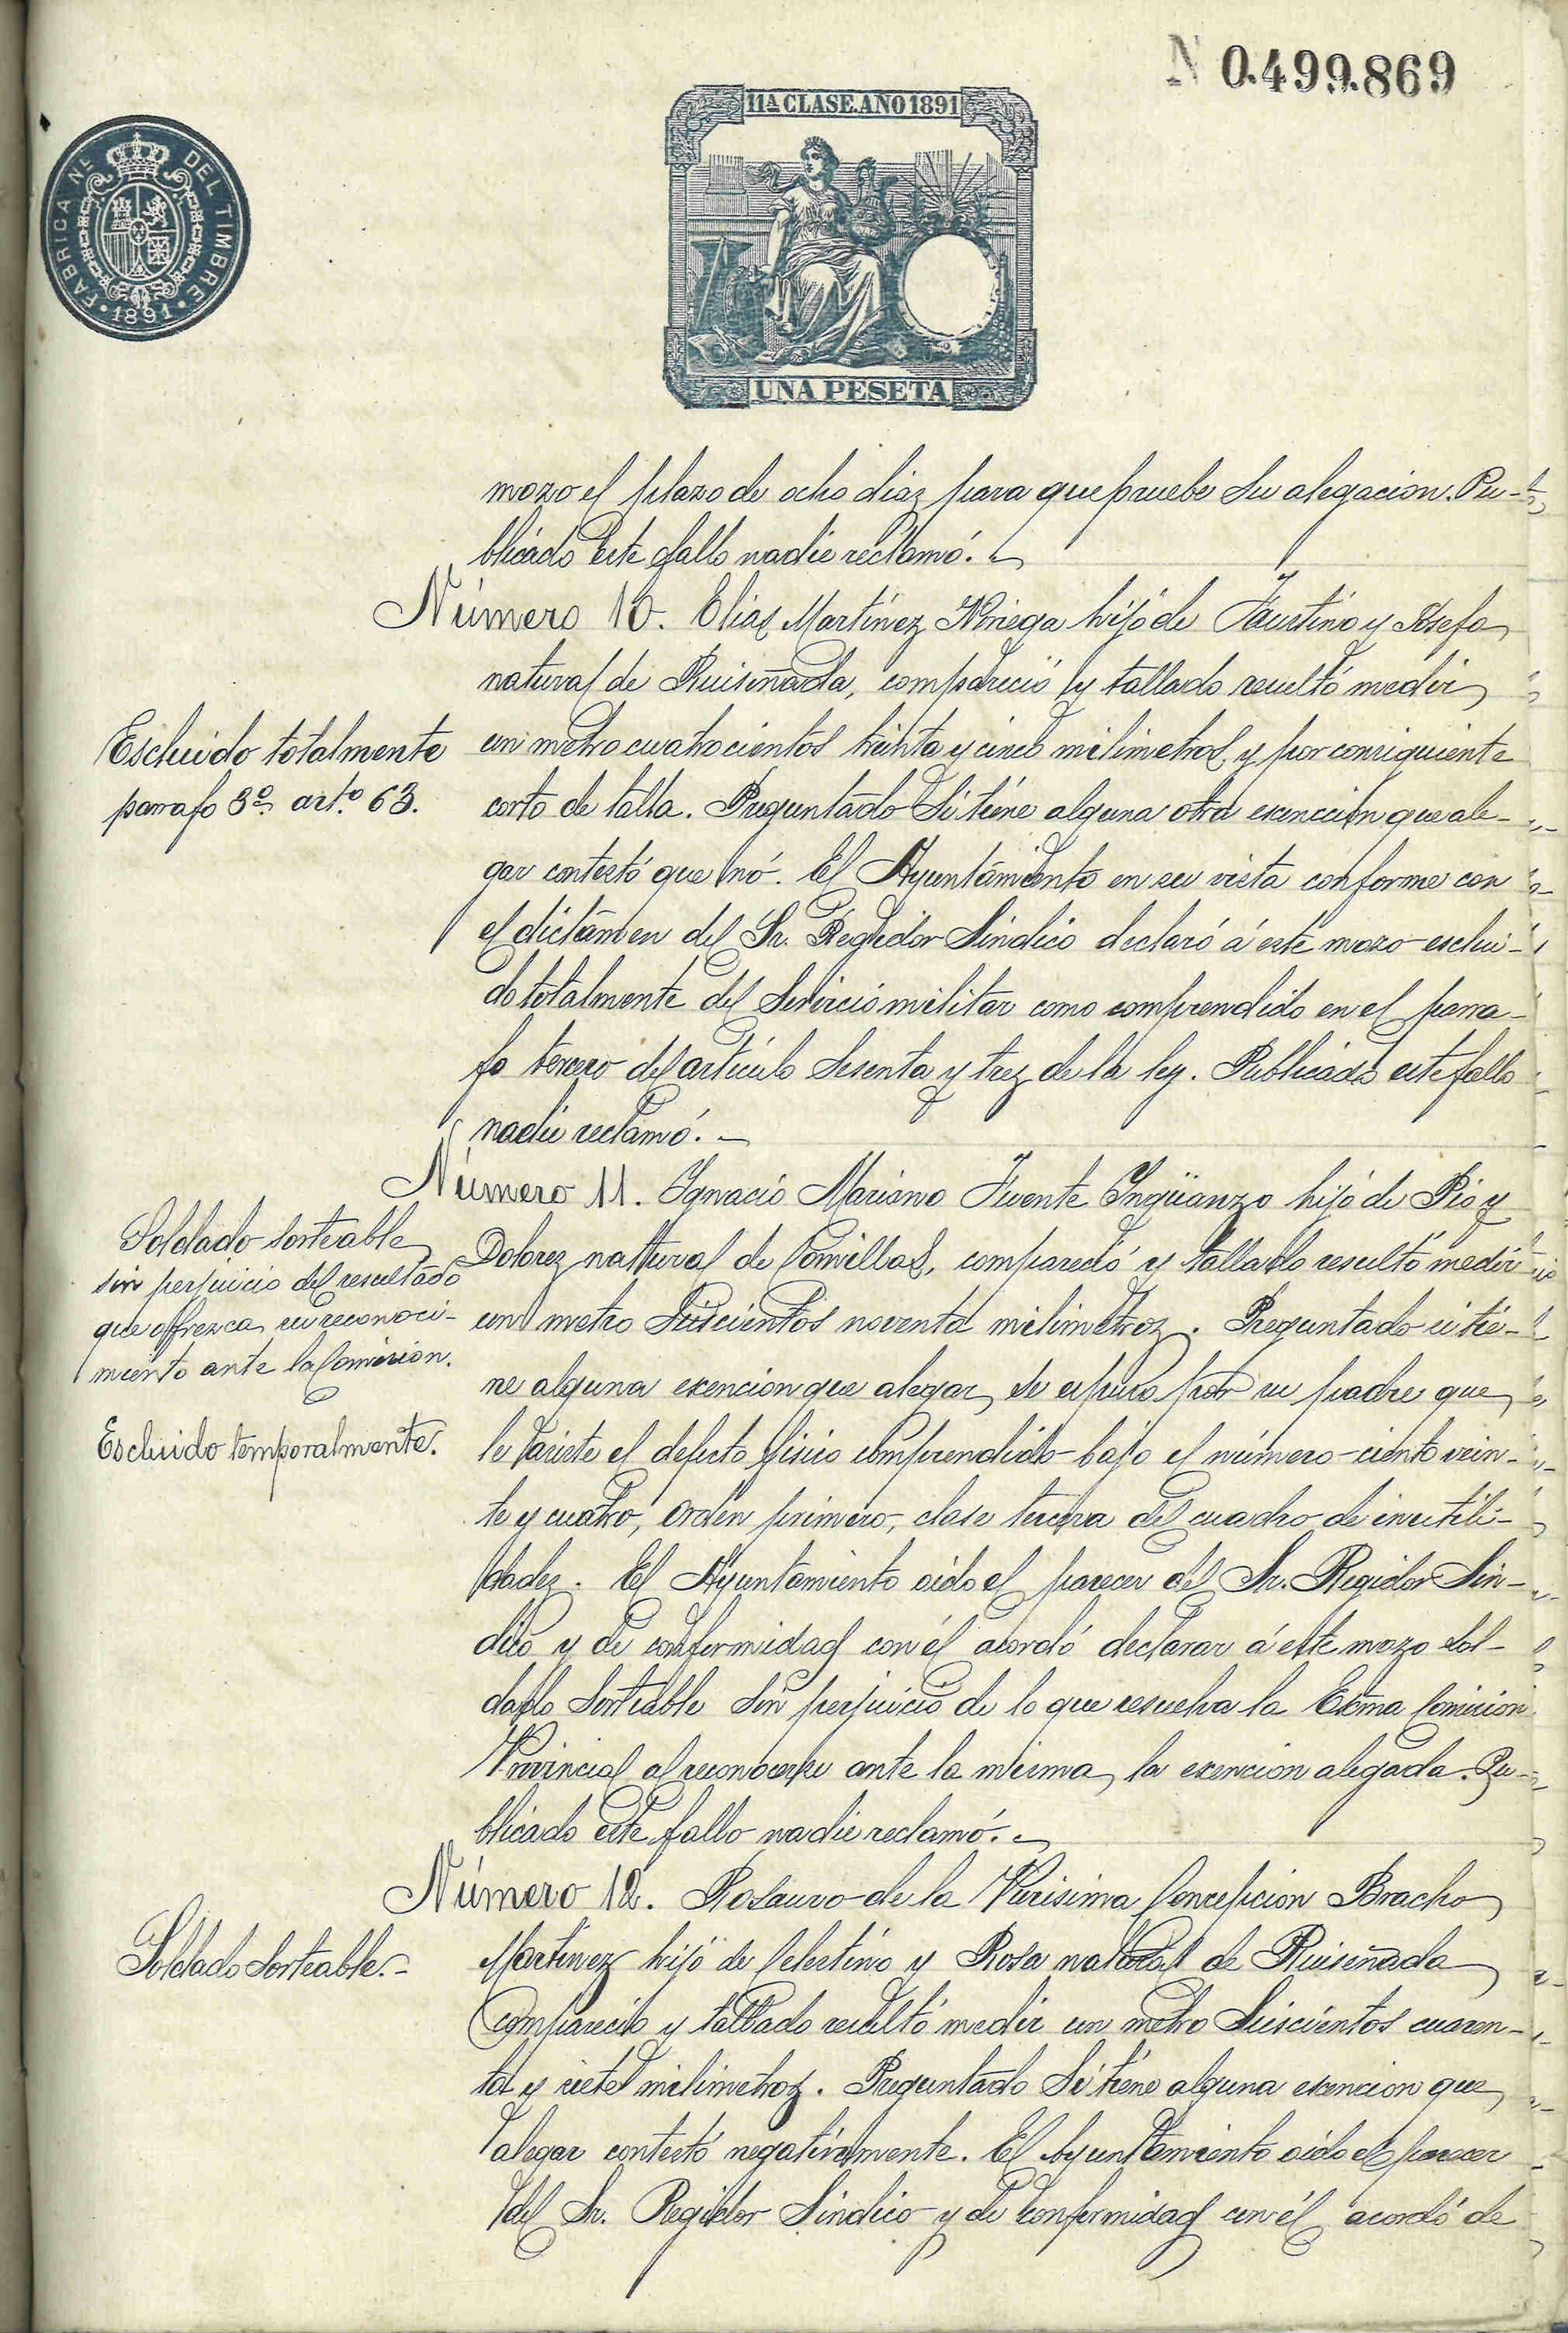 N 0.499.869
11ª CLASE. AÑO 1891
FABRICA NL DEL TIMBRE
1891
UNA PESETA
mozo el plazo de ocho diaz para que pruebe su alegacion. Pu-
blicado este fallo nadie reclamó.
Número 10. Elias Martínez Noriega hijo de Faustino y Josefa
natural de Ruiseñada, compareció y tallado resultó medir
Escluido totalmente
parrafo 3º art.º 63.
un metro cuatrocientos treinta y cinco milimetros, y por consiguiente
corto de talla. Preguntado si tiene alguna otra exencion que ale-
gar contestó que nó. El Ayuntamiento en su vista conforme con
el dictámen del Sr. Regidor Síndico declaró á este mozo esclui-
do totalmente del servicio militar como comprendido en el parra-
fo tercero del artículo sesenta y trez de la ley. Publicado este fallo
nadie reclamó.
Número 11. Ygnacio Mariano Fuente Yngüanzo hijo de Pio y
Soldado sorteable
sin perjuicio del resultado
que ofrezca su reconoci-
miento ante la Comision.
Escluido temporalmente.
Dolorez natural de Comillas, compareció y tallado resultó medir
un metro seiscientos noventa milimetroz. Preguntado si tie-
ne alguna exencion que alegar, se espuso por su padre que
le asiste el defecto fisico comprendido bajo el número ciento vein-
te y cuatro, orden primero, clase tercera del cuadro de inutili-
dadez. El Ayuntamiento oido el parecer del Sr. Regidor Sín-
dico y de conformidad con él acordó declarar á este mozo sol-
dado sorteable sin perjuicio de lo que resuelva la Exma Comision
Provincial al reconocerse ante la misma, la exencion alegada. Pu-
blicado este fallo nadie reclamó.
Número 12. Rosauro de la Purisima Concepcion Bracho
Soldado Sorteable.
Martinez hijo de Celestino y Rosa natural de Ruiseñada
Compareció y tallado resultó medir un metro seiscientos cuaren-
ta y siete milimetroz. Preguntado si tiene alguna exencion que
alegar contestó negativamente. El Ayuntamiento oido el parecer
del Sr. Regidor Síndico y de conformidad con él acordó de